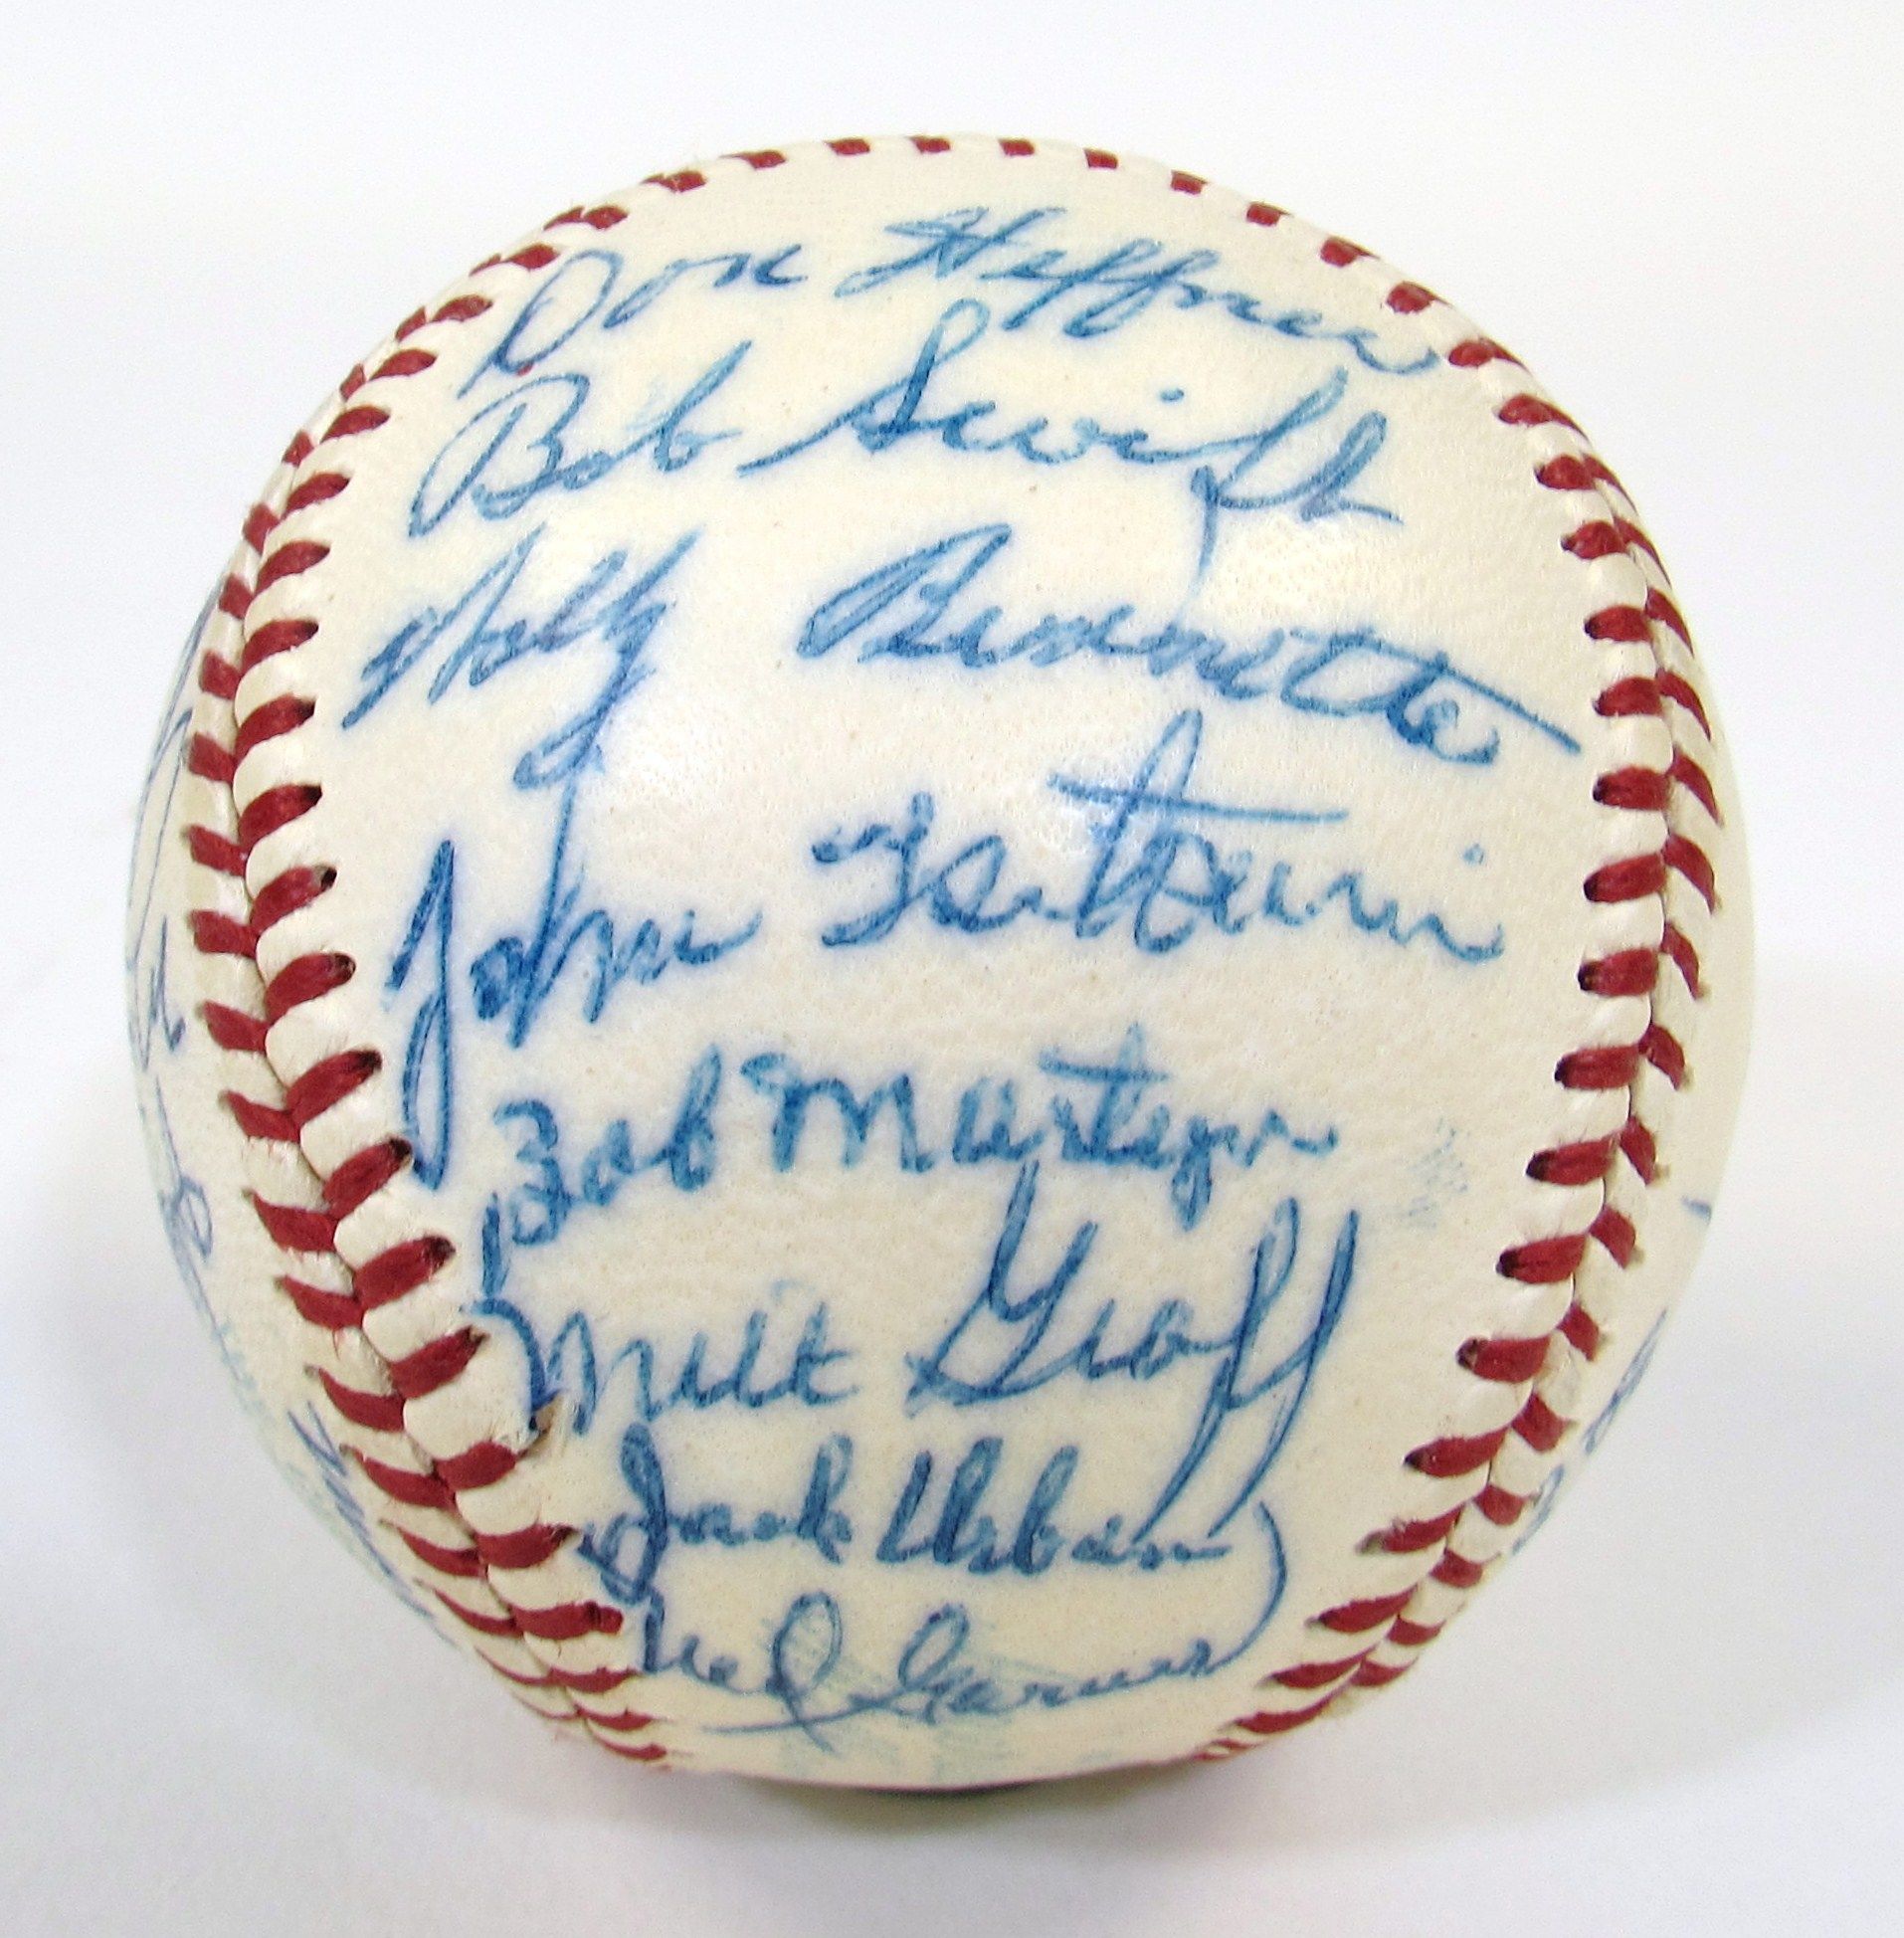 Don Heffner
Bob Swift
Wally Burnette
John Tsitouris
Bob Martyn
Milt Graff
Jack Urban
Ned Garver